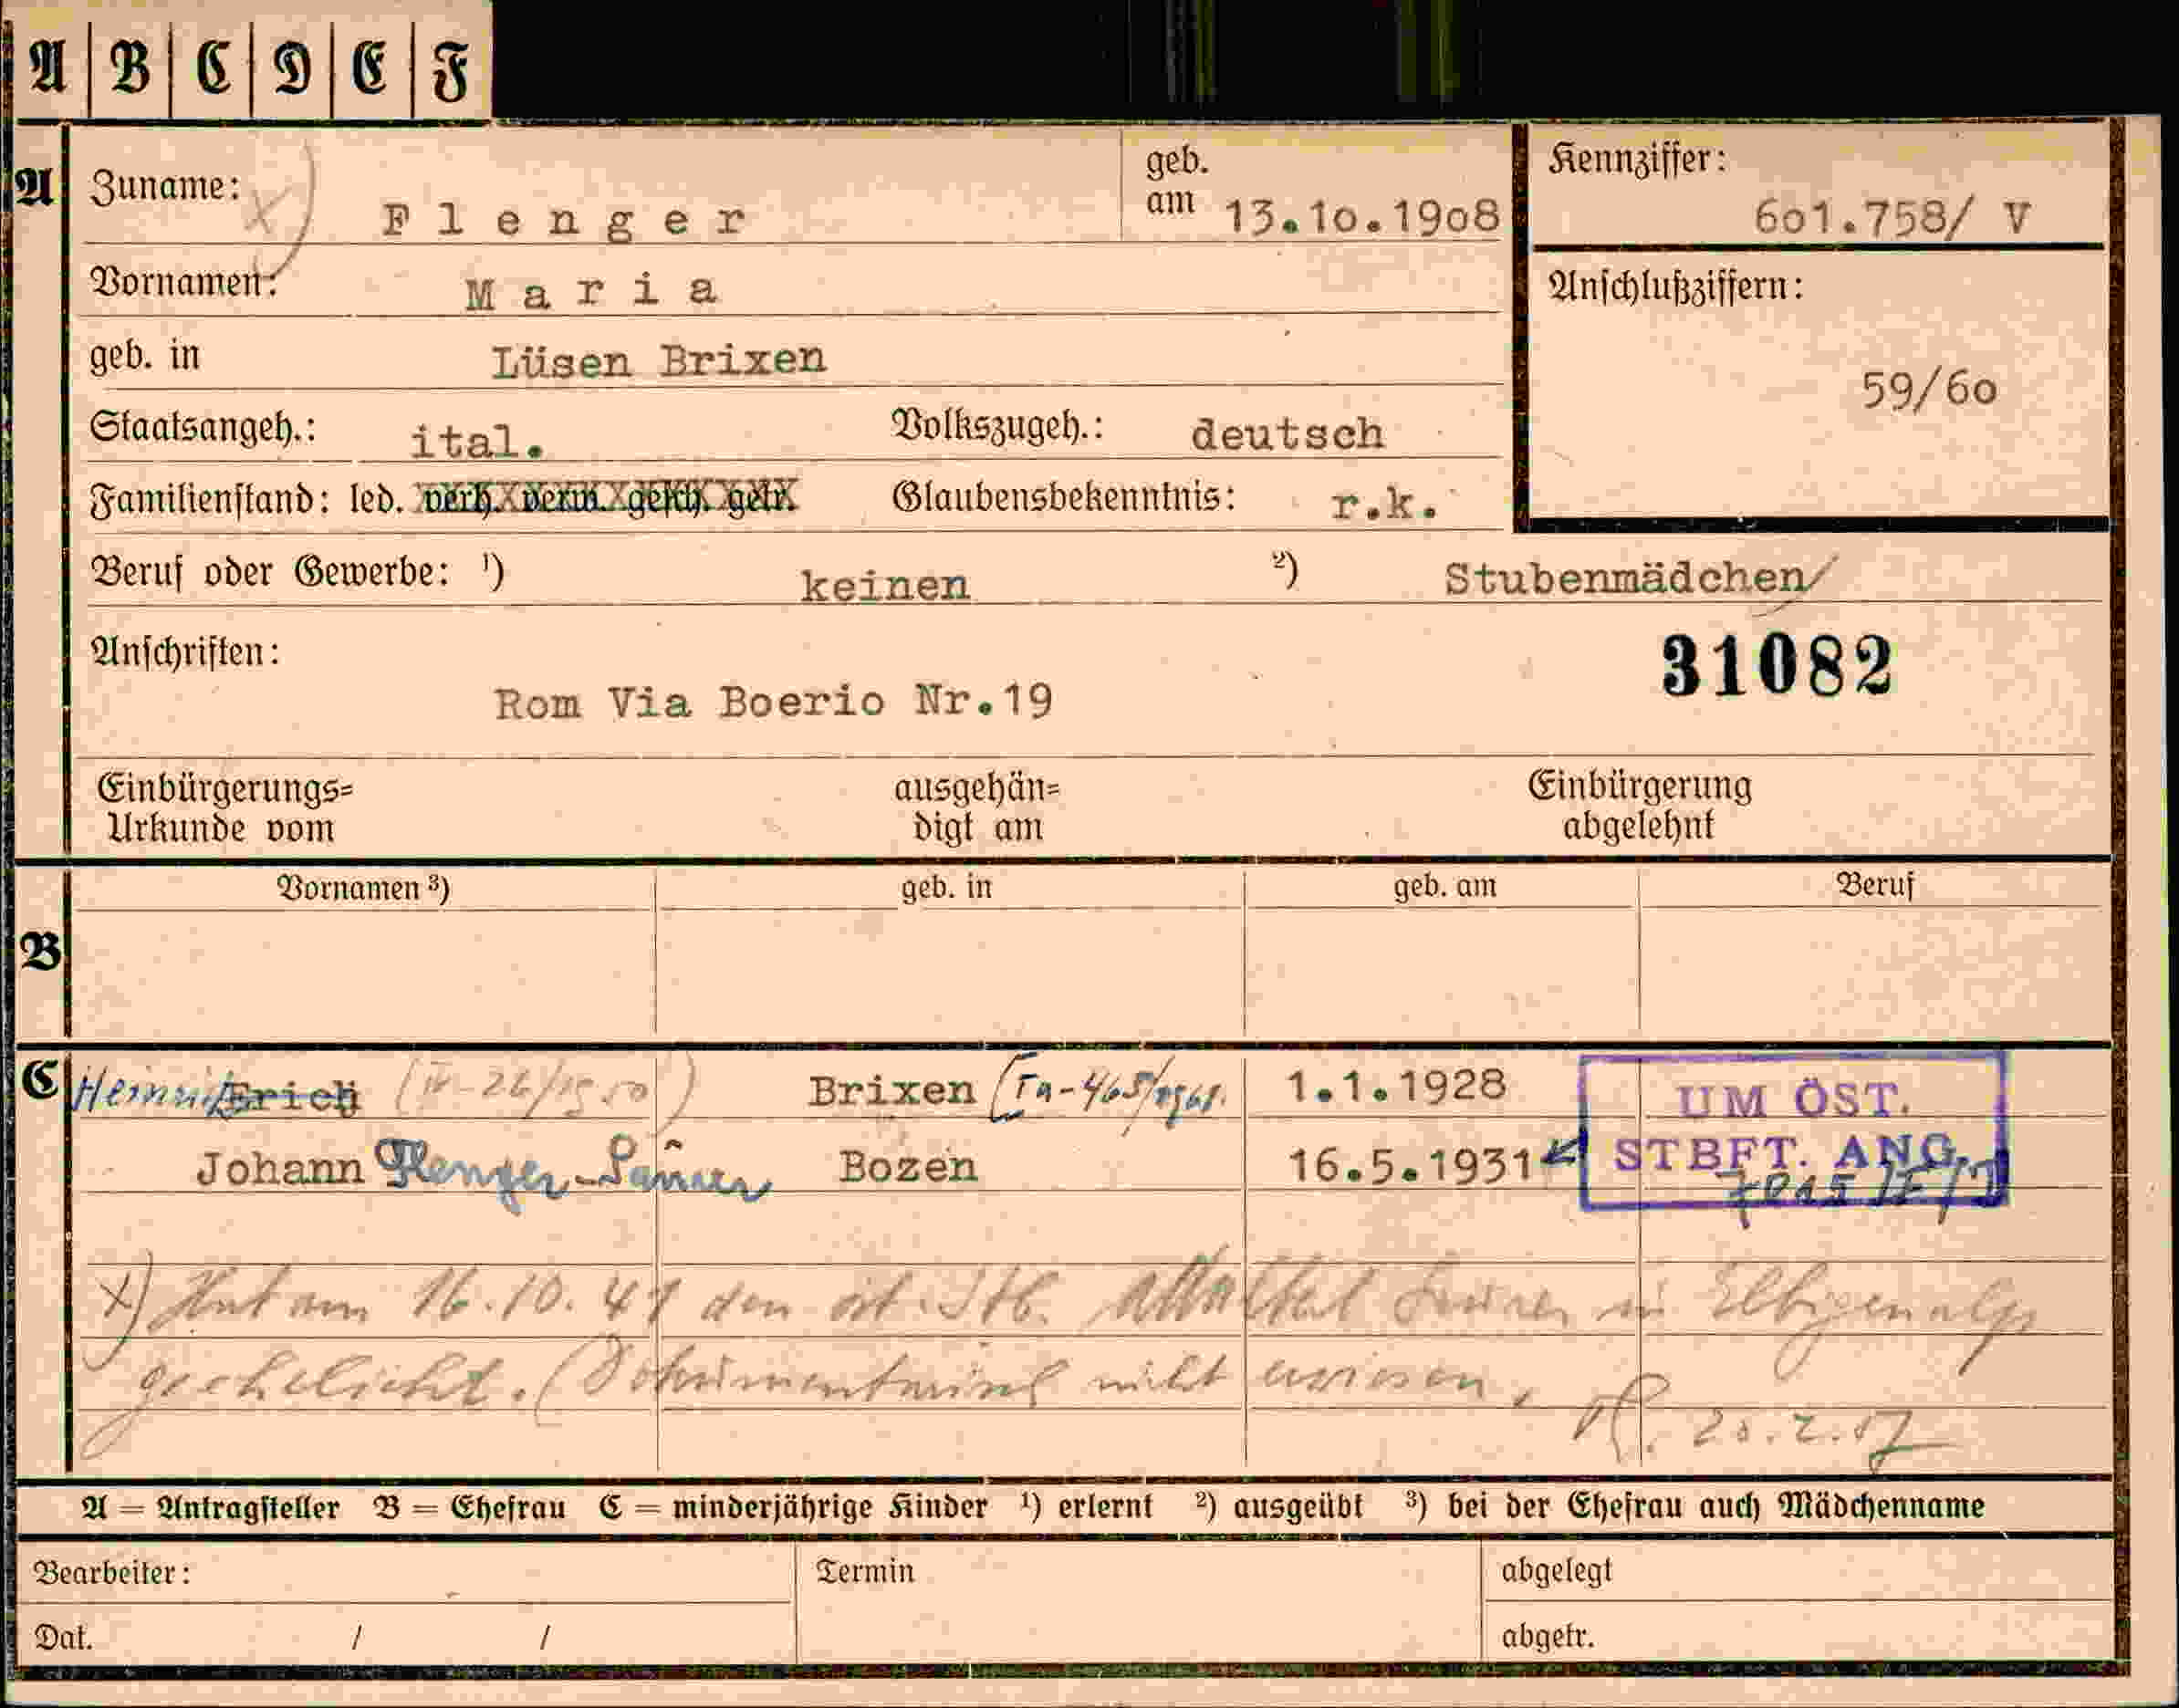 A B C D E F
A Zuname: x) Flenger geb. am 13.10.1908 Kennziffer: 601.758/ V
Vornamen: Maria Anschlußziffern:
geb. in Lüsen Brixen 59/60
Staatsangeh.: ital. Volkszugeh.: deutsch
Familienstand: led. verh. verw. gesch. getr. Glaubensbekenntnis: r.k.
Beruf oder Gewerbe: ¹) keinen ²) Stubenmädchen/
Anschriften: 31082
Rom Via Boerio Nr.19
Einbürgerungs= ausgehän= Einbürgerung
Urkunde vom digt am abgelehnt
Vornamen ³) geb. in geb. am Beruf
B
C Heinrich Erich Brixen 1.1.1928 UM ÖST.
Johann Flenger- Bozen 16.5.1931 STBFT. ANG.
x) Hat am 16.10.41 den öst. Stb. in Elbigenalp
geehelicht. (Dokumentarisch nicht erwiesen,
A = Antragsteller B = Ehefrau C = minderjährige Kinder ¹) erlernt ²) ausgeübt ³) bei der Ehefrau auch Mädchenname
Bearbeiter: Termin abgelegt
Dat. / / abgetr.